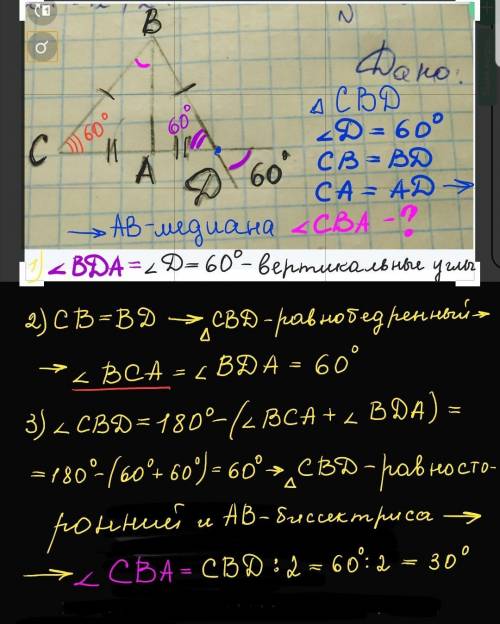 N
B
Дано:
△CBD
60°
60°
∠D = 60°
C
CB = BD
A
D
60°
CA = AD →
→ AB-медиана ∠CBA - ?
1) ∠BDA = ∠D = 60° - вертикальные углы
2) CB = BD → △CBD - равнобедренный →
→ ∠BCA = ∠BDA = 60°
3) ∠CBD = 180° - (∠BCA + ∠BDA) =
= 180° - (60° + 60°) = 60° → △CBD - равносто-
ронний и AB - биссектриса →
→ ∠CBA = CBD : 2 = 60° : 2 = 30°